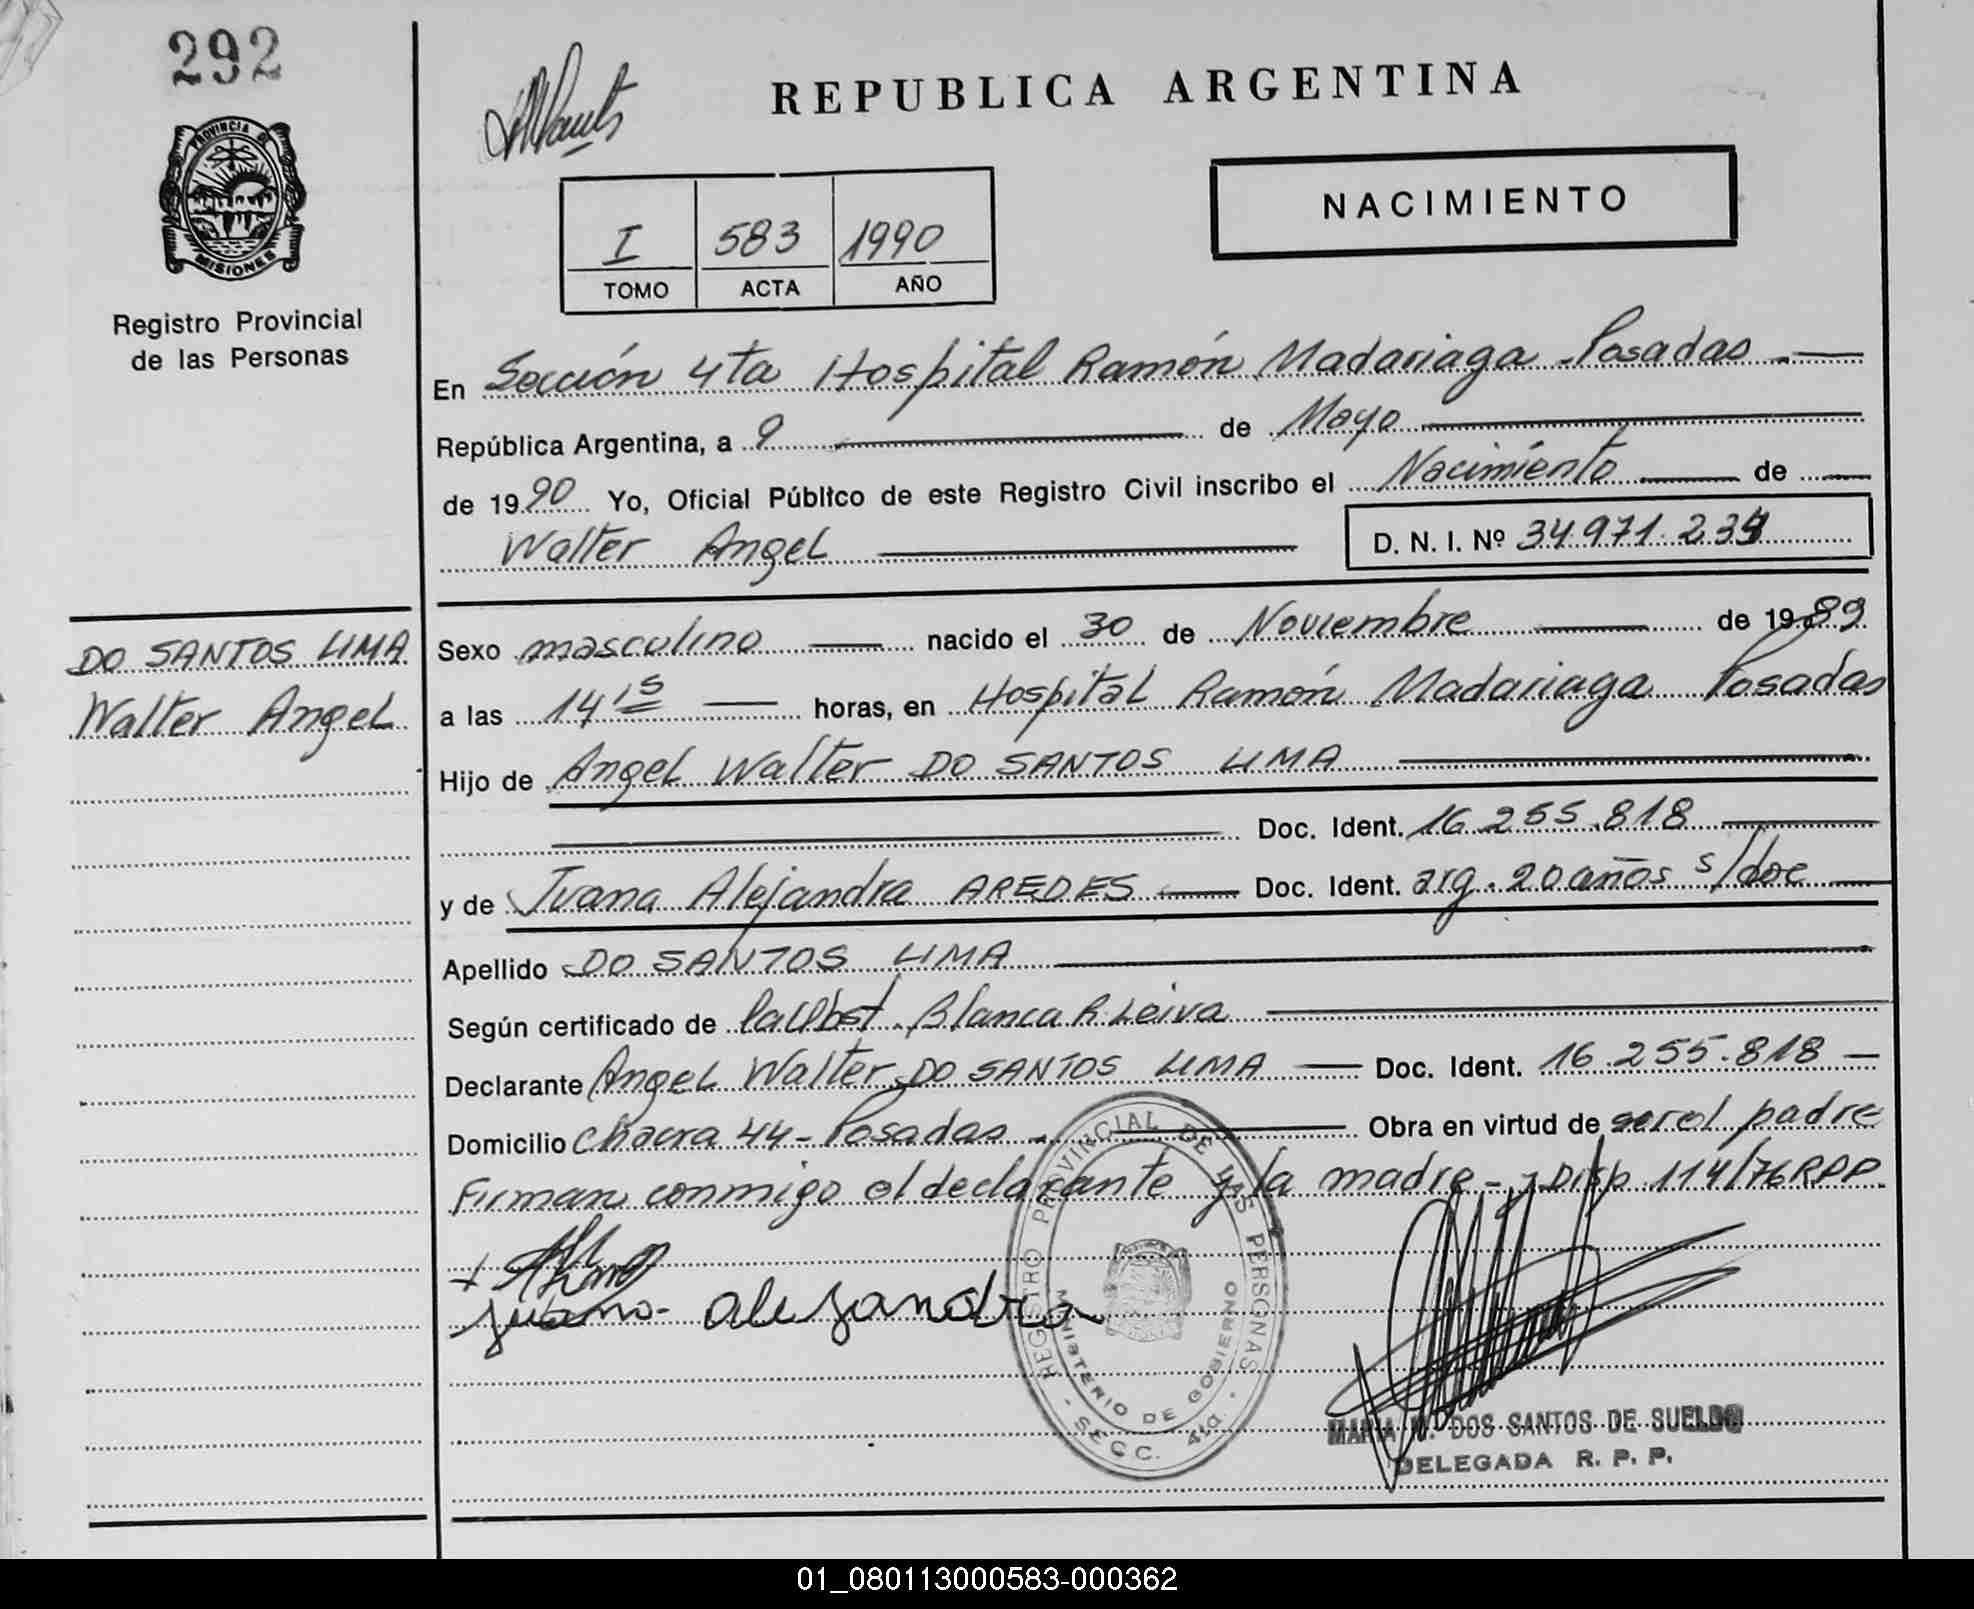 292
REPUBLICA ARGENTINA
PROVINCIA DE
MISIONES
Registro Provincial
de las Personas
NACIMIENTO
I 583 1990
TOMO ACTA AÑO
En Sección 4ta Hospital Ramón Madariaga - Posadas
República Argentina, a 9 de Mayo
de 1990 Yo, Oficial Público de este Registro Civil inscribo el Nacimiento de
Walter Angel D. N. I. Nº 34.971.
DO SANTOS LIMA
Walter Angel
Sexo masculino nacido el 30 de Noviembre de 1989
a las 14 15 horas, en Hospital Ramón Madariaga Posadas
Hijo de Angel Walter DO SANTOS LIMA
Doc. Ident. 16.255.818
y de Juana Alejandra AREDES Doc. Ident. arg. 20 años s/doc
Apellido DO SANTOS LIMA
Según certificado de Blanca R. Leiva
Declarante Angel Walter DO SANTOS LIMA Doc. Ident. 16.255.818
Domicilio Chacra 44 - Posadas - Obra en virtud de ser el padre
Firman conmigo el declarante y la madre - y Disp. 114/76 RPP
juana alejandra
REGISTRO PROVINCIAL DE LAS PERSONAS
MINISTERIO DE GOBIERNO
SECC. 4ta.
MARIA DOS SANTOS DE SUELDO
DELEGADA R. P. P.
01_080113000583-000362